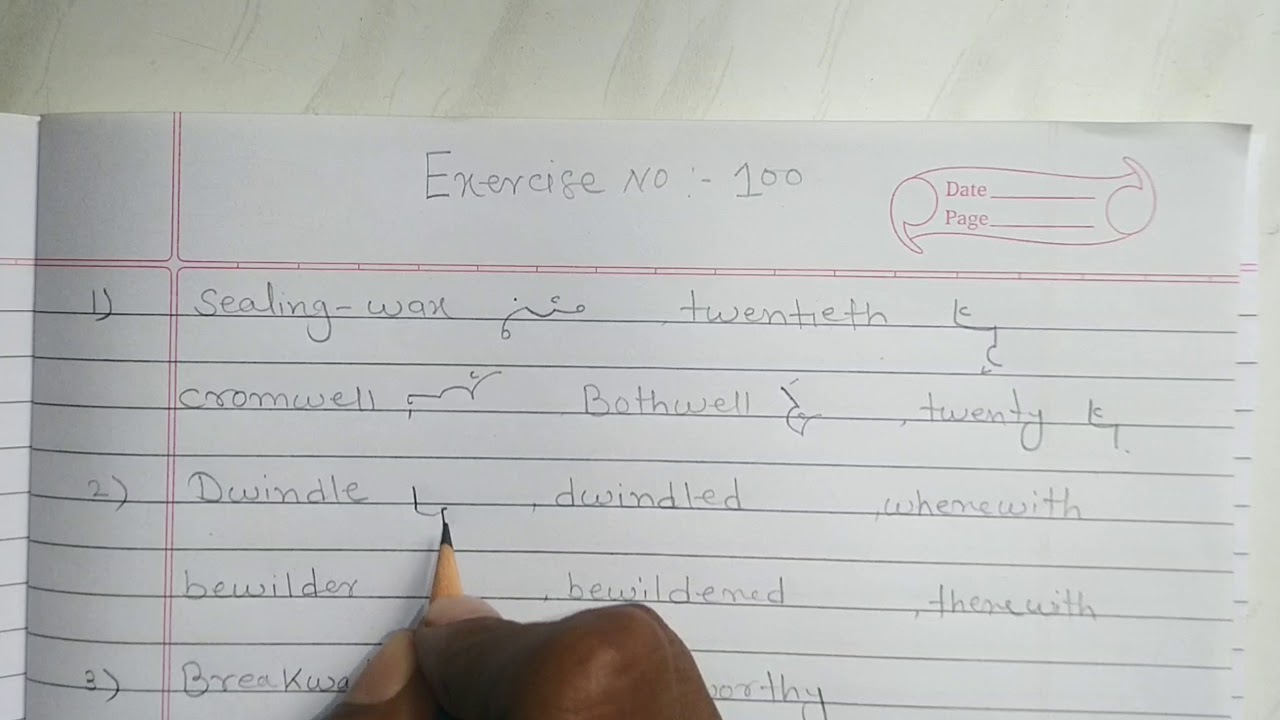 Exercise No :- 100
Date
Page
1) Sealing-wax , twentieth
cromwell , Bothwell , twenty
2) Dwindle , dwindled , wherewith
bewilder , bewildered , therewith
3)